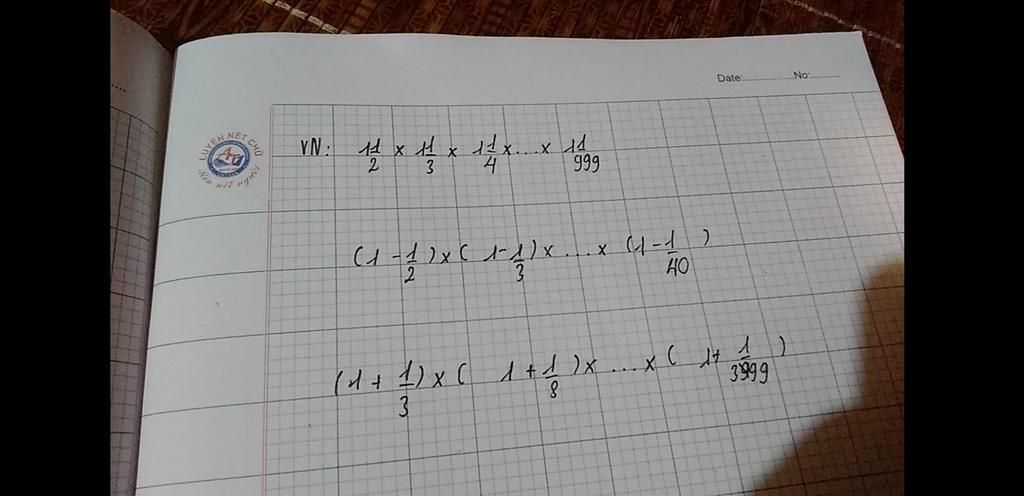 Date:..................No:..........
LUYỆN NÉT CHỮ
Rèn nết người
VN: 1 1/2 x 1 1/3 x 1 1/4 x ... x 1 1/999
(1 - 1/2) x (1 - 1/3) x ... x (1 - 1/40)
(1 + 1/3) x (1 + 1/8) x ... x (1 + 1/3999)